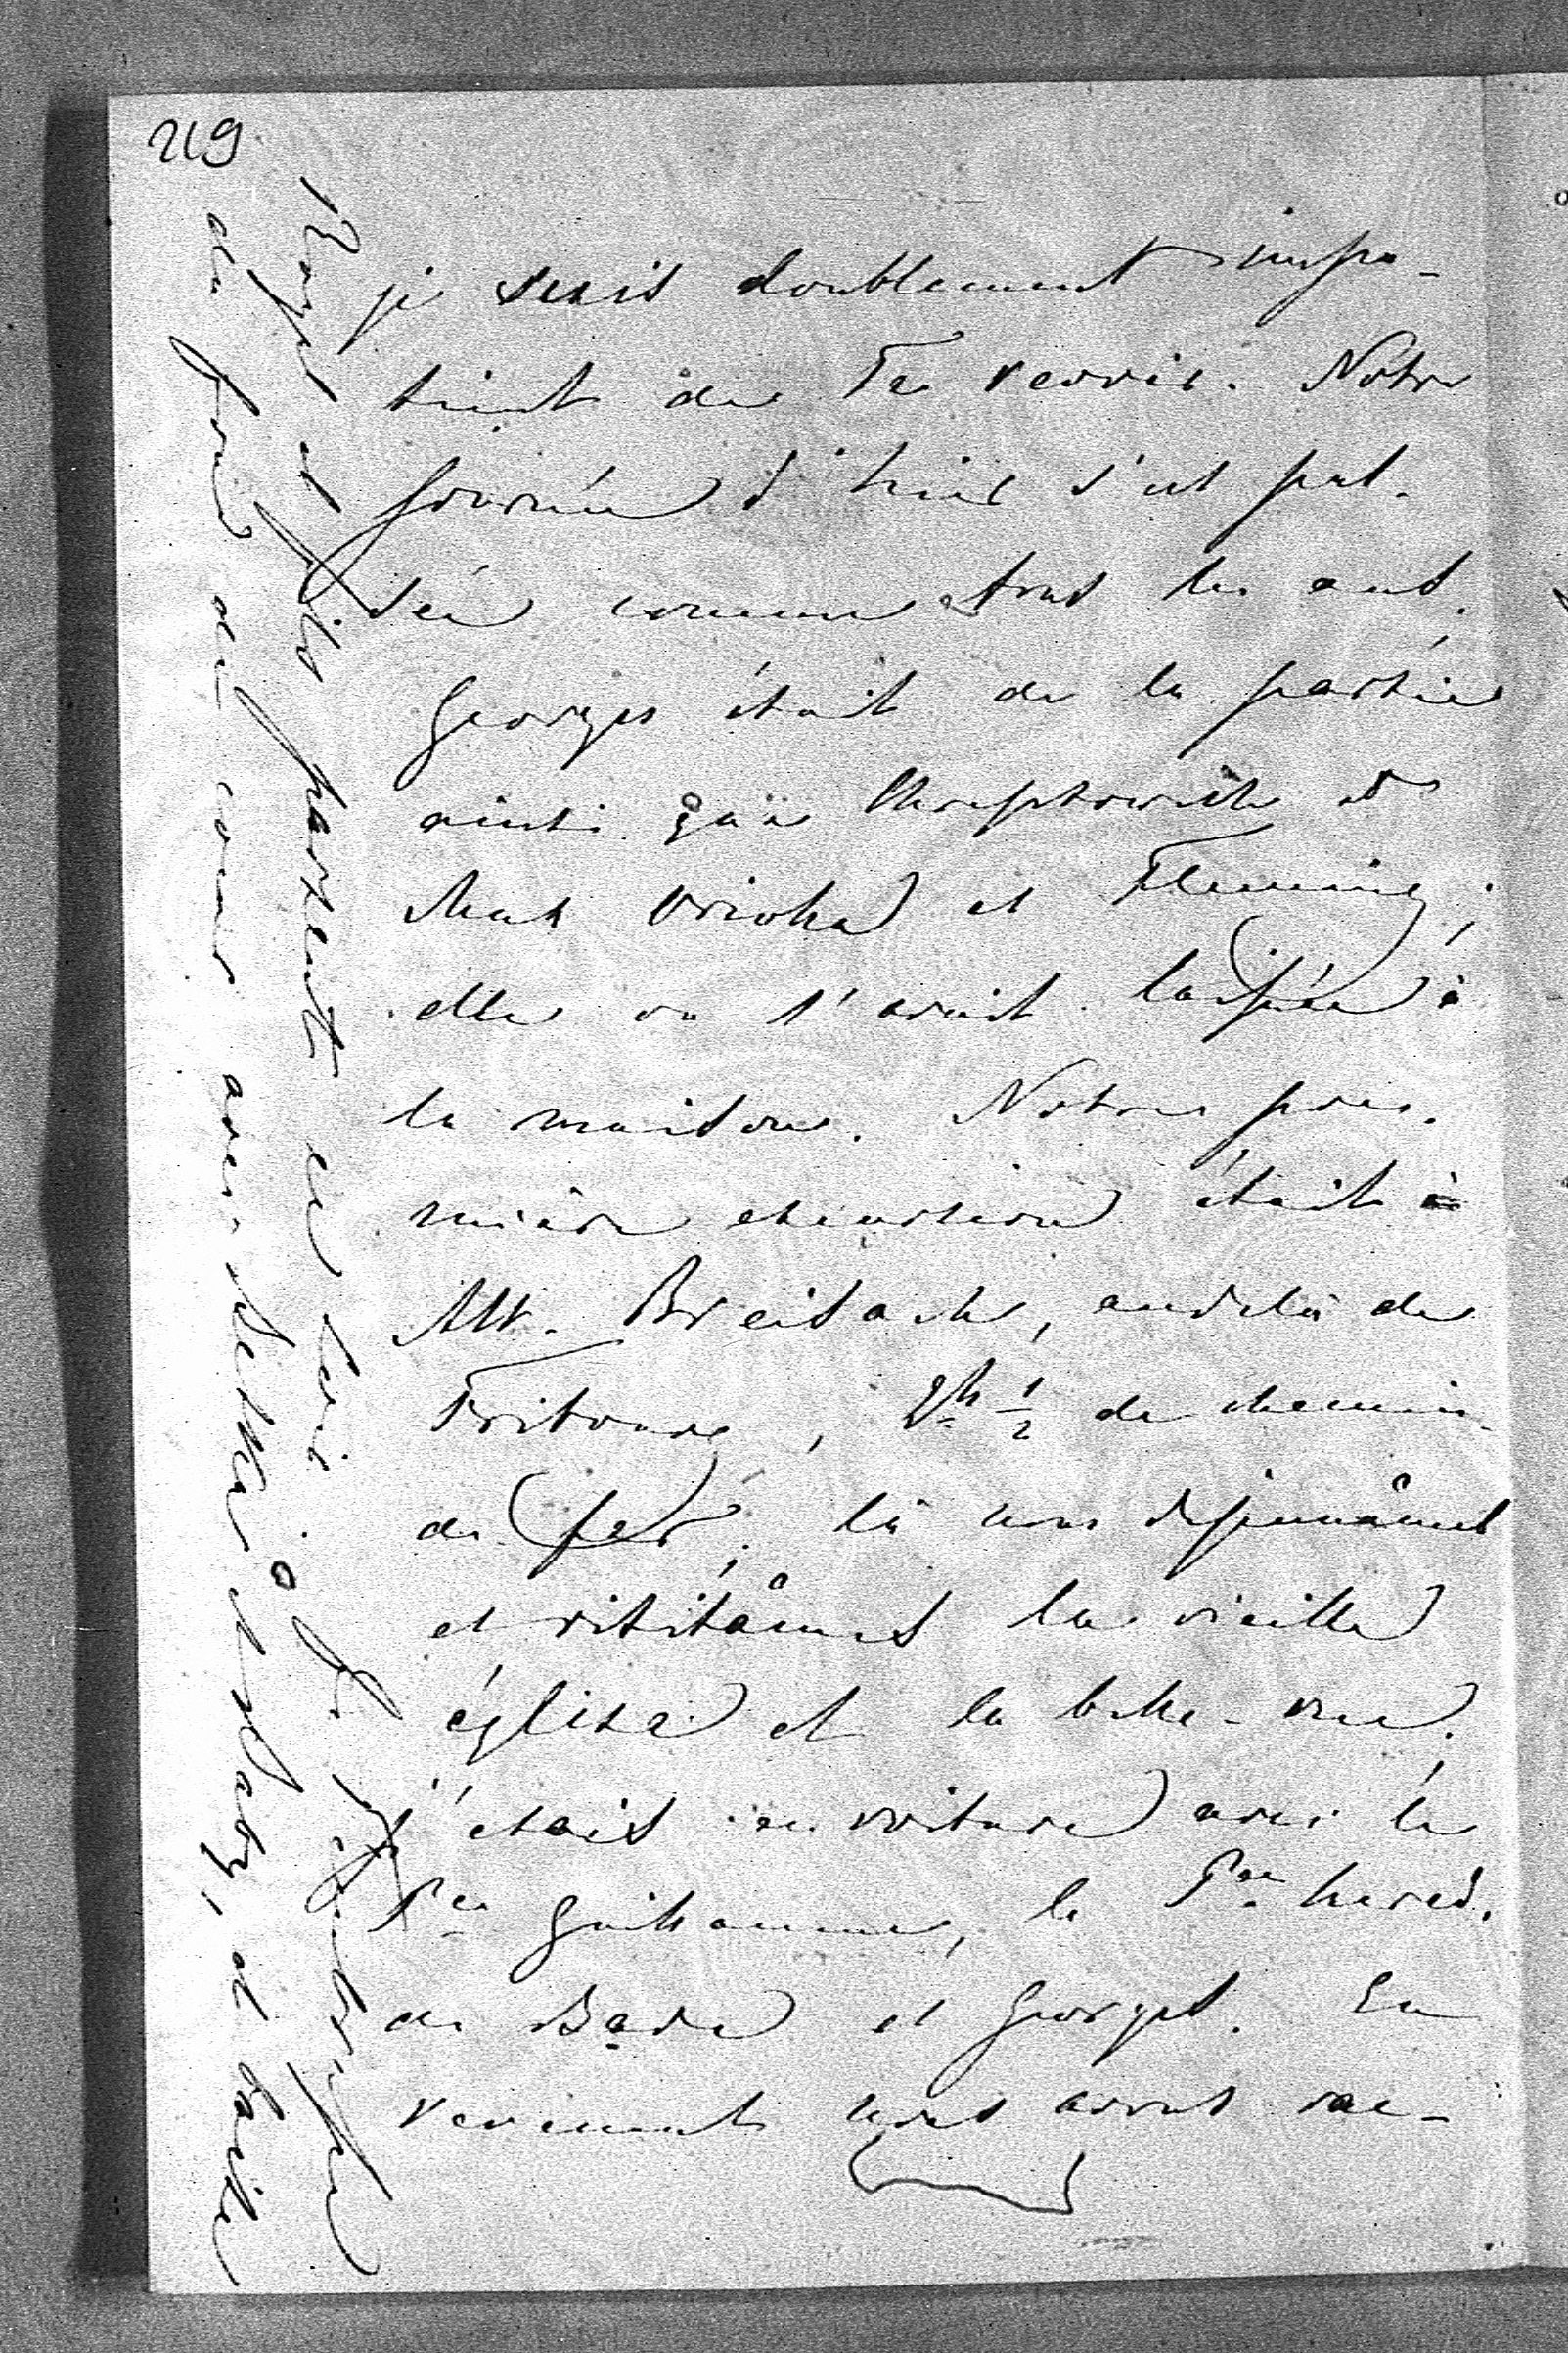 219
je suis doublement impa-
tient de Te revoir. Notre
journée d'hier s'est pas-
sée comme tous les ans.
Georges était de la partie
ainsi que Chreptowitch et
et Fleming;
elle on l'avait laissée à
la maison. Notre pre-
mière excursion était à
Alt. Breisach, audelà de
Fribourg, 2h 1/2 de chemin
de fer; là nous déjeunâmes
et visitâmes la vieille
église et la belle-vue.
j'étais en voiture avec la
Pce Guillaume, le Pce héréd.
de Bade et Georges. En
revenant nous avons
et fils partent ce soir. Je
de tout mon cœur avec et Baby, et